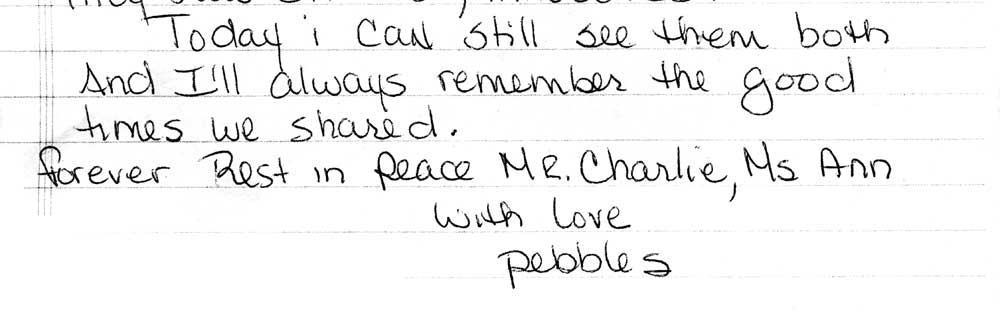 Today i can still see them both
And I'll always remember the good
times we shared.
forever Rest in peace MR. Charlie, Ms Ann
with love
pebbles